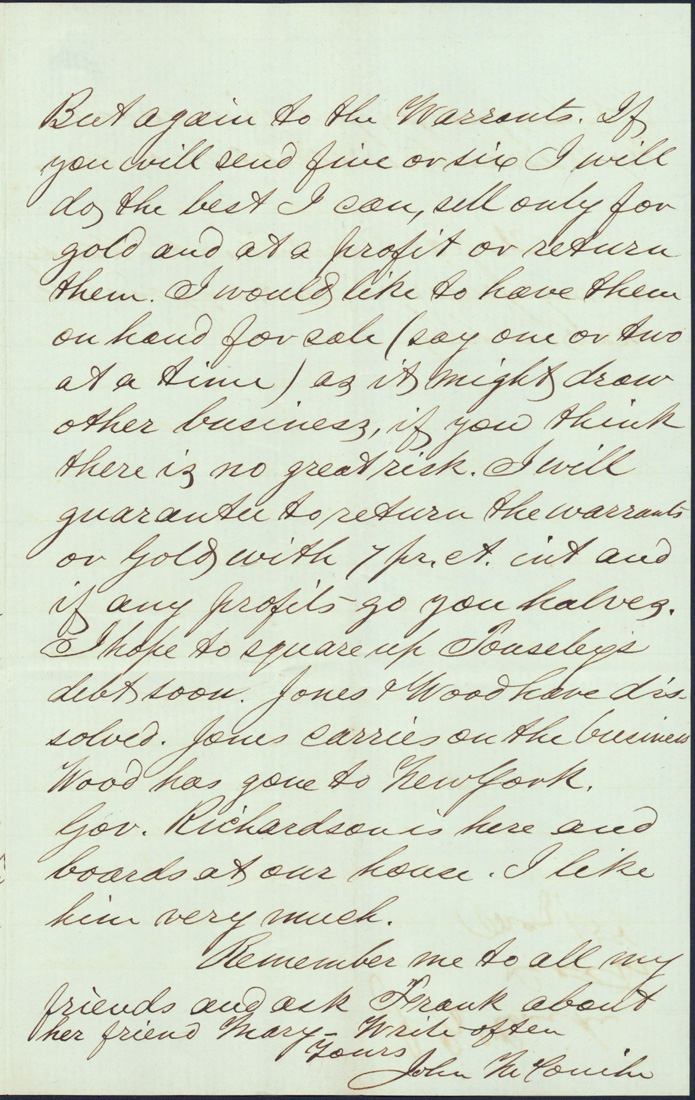 But again to the Warrants. If
you will send five or six I will
do, the best I can, sell only for
gold and at a profit or return
them. I would like to have them
on hand for sale (say one or two
at a time) as it might draw
other business, if you think
there is no great risk. I will
guarantee to return the warrants
or Gold with 7 pr. ct. int and
if any profits go you halves.
I hope to square up Tousely's
debt soon. Jones & Wood have dis-
solved. Jones carries on the business
Wood has gone to New York.
Gov. Richardson is here and
boards at our house. I like
him very much.
Remember me to all my
friends and ask Frank about
her friend Mary - Write often
Yours
John McConihe